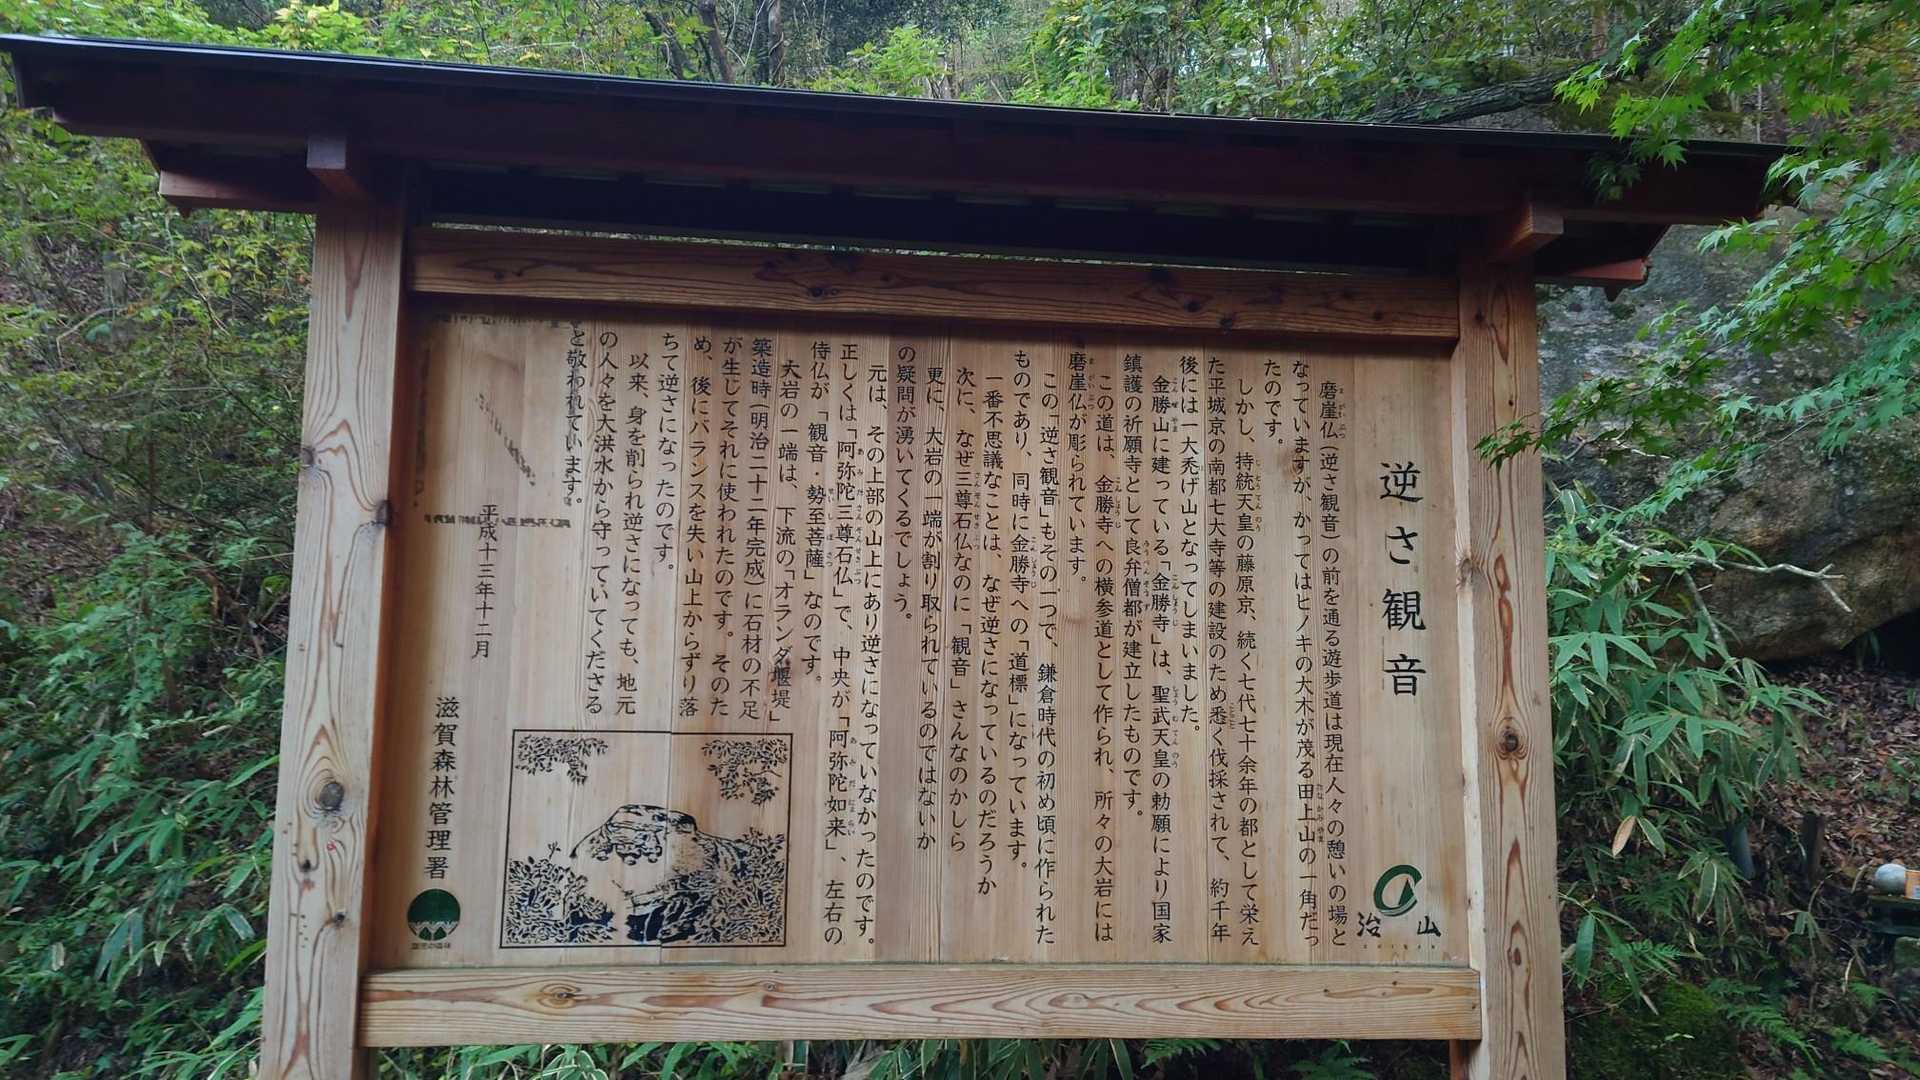 逆さ観音
磨崖仏(逆さ観音)の前を通る遊歩道は現在人々の憩いの場と
なっていますが、かつてはヒノキの大木が茂る田上山の一角だっ
たのです。
しかし、持統天皇の藤原京、続く七代七十余年の都として栄え
た平城京の南都七大寺等の建設のため悉く伐採されて、約千年
後には一大禿げ山となってしまいました。
金勝山に建っている「金勝寺」は、聖武天皇の勅願により国家
鎮護の祈願寺として良弁僧都が建立したものです。
この道は、金勝寺への横参道として作られ、所々の大岩には
磨崖仏が彫られています。
この「逆さ観音」もその一つで、鎌倉時代の初め頃に作られた
ものであり、同時に金勝寺への「道標」になっています。
一番不思議なことは、なぜ逆さになっているのだろうか
次に、なぜ三尊石仏なのに「観音」さんなのかしら
更に、大岩の一端が割り取られているのではないか
の疑問が湧いてくるでしょう。
元は、その上部の山上にあり逆さになっていなかったのです。
正しくは「阿弥陀三尊石仏」で、中央が「阿弥陀如来」、左右の
侍仏が「観音・勢至菩薩」なのです。
大岩の一端は、下流の「オランダ堰堤」
築造時(明治二十二年完成)に石材の不足
が生じてそれに使われたのです。そのた
め、後にバランスを失い山上からずり落
ちて逆さになったのです。
以来、身を削られ逆さになっても、地元
の人々を大洪水から守っていてくださる
と敬われています。
平成十三年十二月
滋賀森林管理署
治山